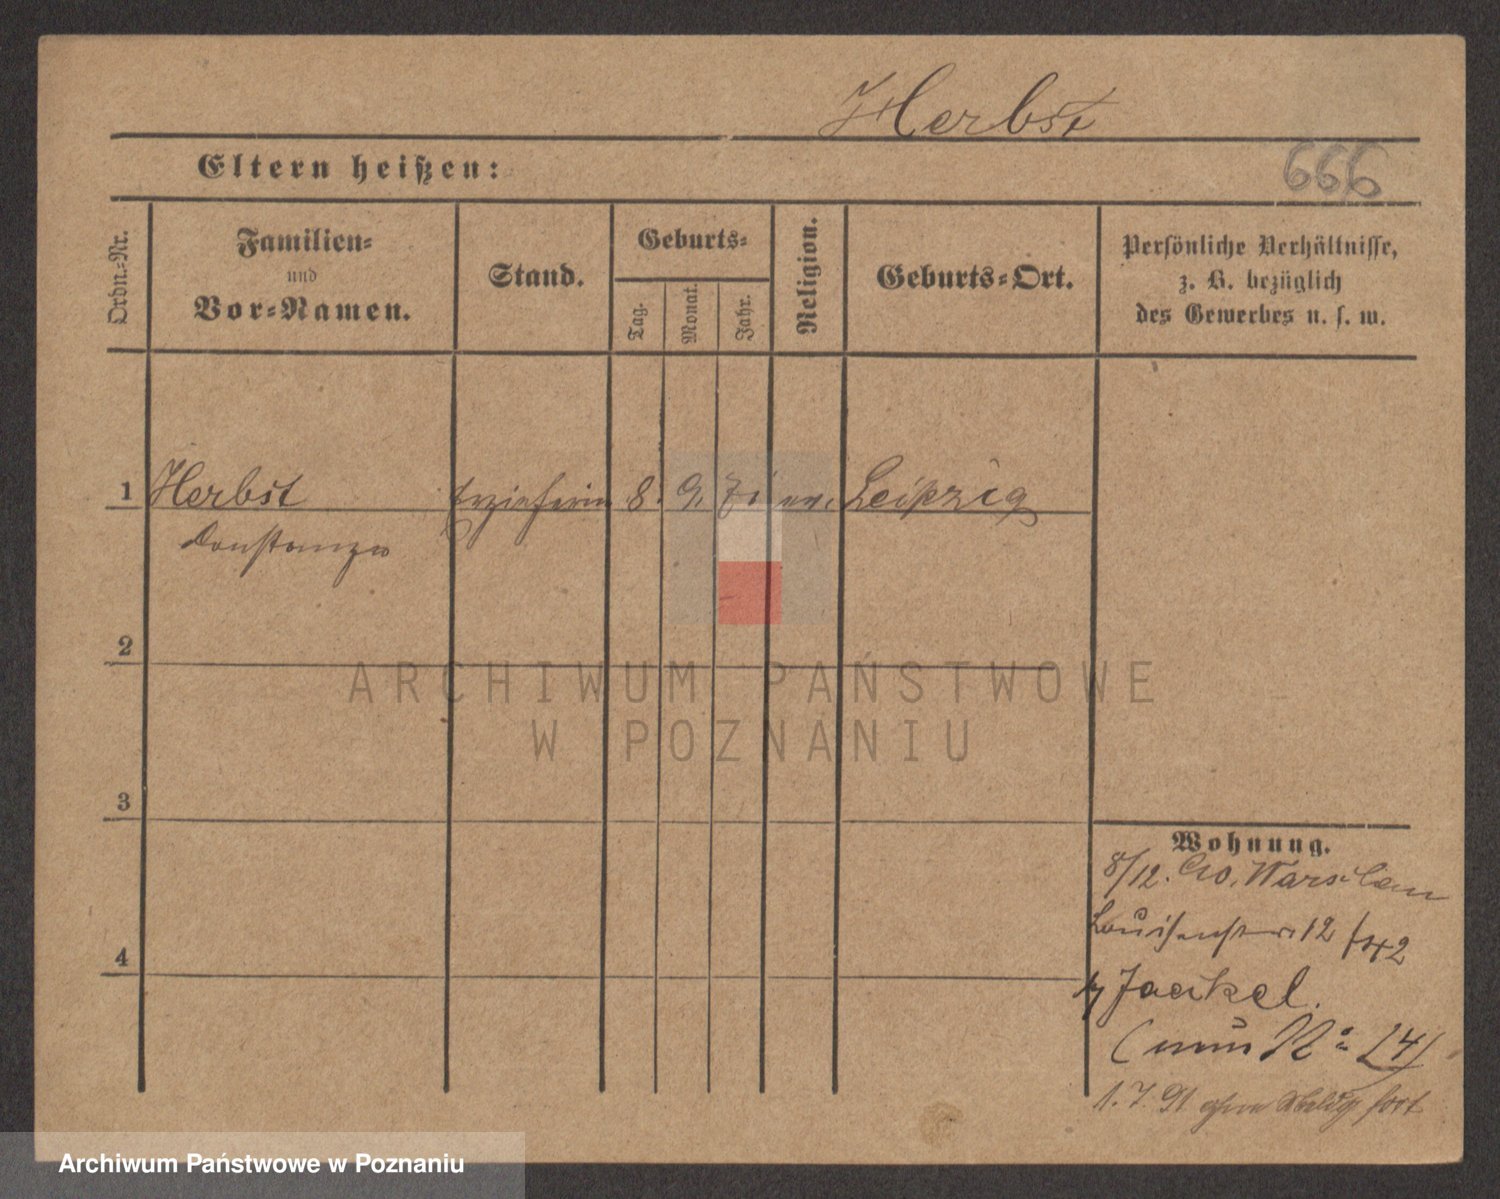 Herbst
666
Eltern heißen:
Ordn.-Nr.
Familien-
und
Vor-Namen.
Stand.
Geburts-
Tag.
Monat.
Jahr.
Religion.
Geburts-Ort.
Persönliche Verhältnisse,
z. B. bezüglich
des Gewerbes u. s. w.
1 Herbst Erzieherin 8. 9. 71 ev. Leipzig
Constanze
2
3
4
Wohnung.
8/12. 90. Warschau
Louisenstr 12
Jaekel.
(nun No 14)
1. 7. 91 ohne Meldg fort
ARCHIWUM PAŃSTWOWE
W POZNANIU
Archiwum Państwowe w Poznaniu